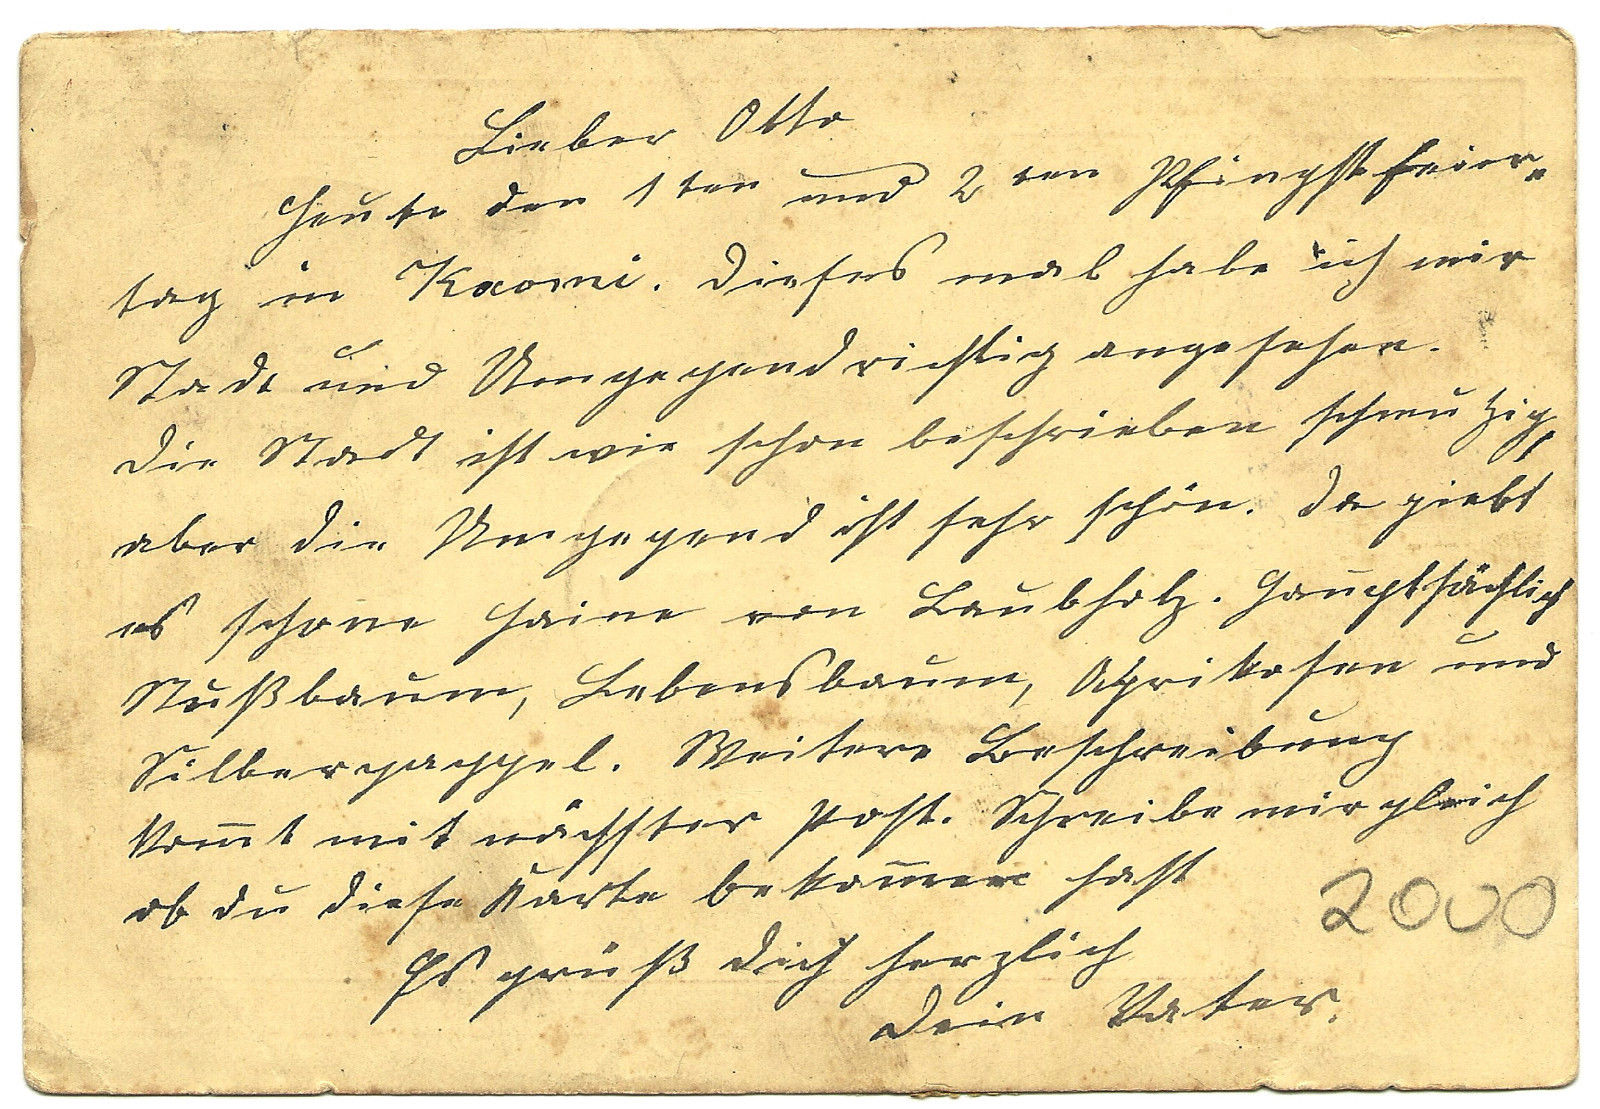 Lieber Otto
Heute den 1ten und 2ten Pfingstfeier-
tag in Kaomi. Dieses mal habe ich mir
Stadt und Umgegend richtig angesehen.
Die Stadt ist wie schon beschrieben schmutzig,
aber die Umgegend ist sehr schön. Da giebt
es schöne Haine von Laubholz. Hauptsächlich
Nußbaum, Lebensbaum, Aprikosen und
Silberpappel. Weitere Beschreibung
kom̅t mit nächster Post. Schreibe mir gleich
ob du diese Karte bekom̅en hast
Es grüß Dich herzlich
Dein Vater.
2000